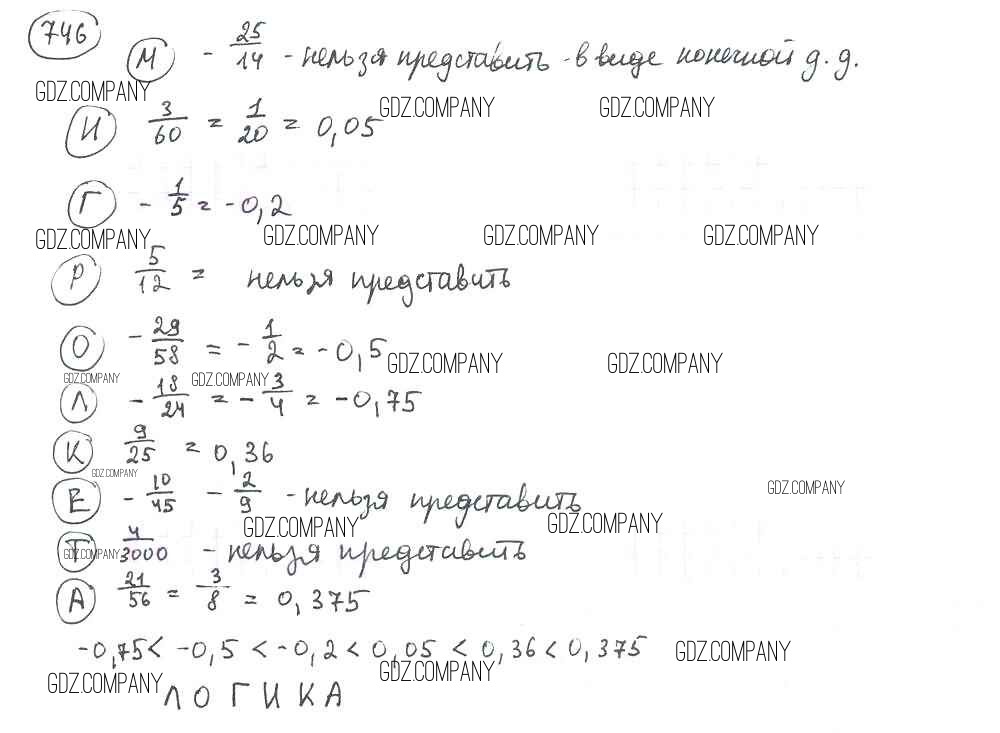 746
М - 25/14 - нельзя представить в виде конечной д. д.
GDZ.COMPANY GDZ.COMPANY GDZ.COMPANY
И 3/60 = 1/20 = 0,05
Г - 1/5 = -0,2
GDZ.COMPANY GDZ.COMPANY GDZ.COMPANY GDZ.COMPANY
Р 5/12 = нельзя представить
О - 29/58 = - 1/2 = -0,5
GDZ.COMPANY GDZ.COMPANY
GDZ.COMPANY GDZ.COMPANY
Л - 18/24 = - 3/4 = -0,75
К 9/25 = 0,36
GDZ.COMPANY
Е - 10/45 - 2/9 - нельзя представить
GDZ.COMPANY
GDZ.COMPANY GDZ.COMPANY
Т 4/3000 - нельзя представить
GDZ.COMPANY
А 21/56 = 3/8 = 0,375
-0,75 < -0,5 < -0,2 < 0,05 < 0,36 < 0,375
GDZ.COMPANY
GDZ.COMPANY GDZ.COMPANY
ЛОГИКА